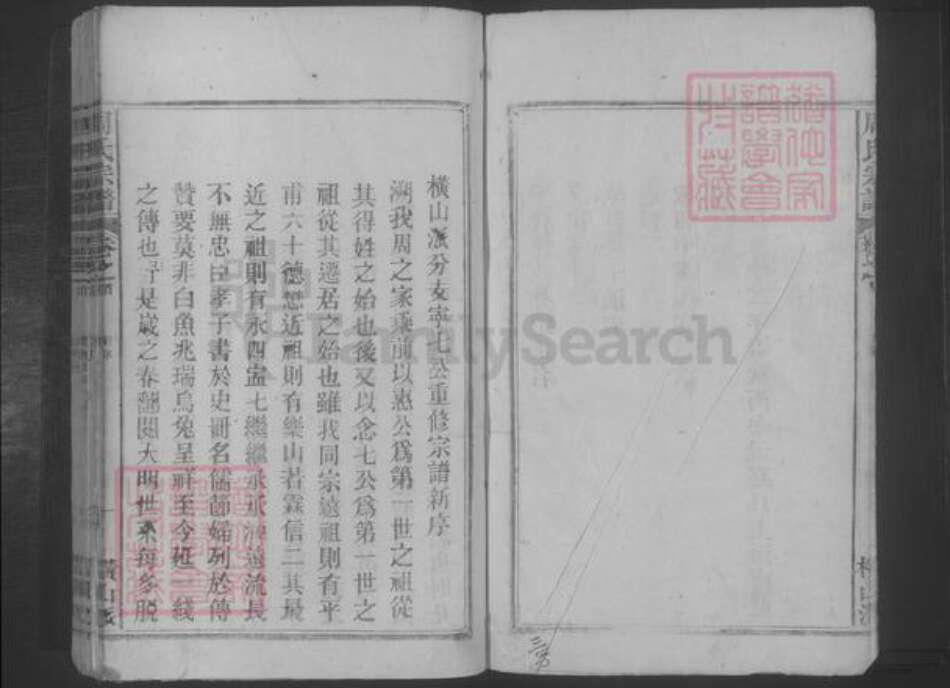 橫山派分支寧七公重修宗譜新序
溯我周之家乘前以惠公爲第一世之祖從
其得姓之始也後又以念七公爲第一世之
祖從其遷居之始也雖我同宗遠祖則有平
甫六十德懋近祖則有樂山若霖信二其最
近之祖則有永四盂七繼繼承承源遠流長
不無忠臣孝子書於史冊名儒節婦列於傳
贊要莫非白魚兆瑞烏兔呈祥至今延一綫
之傳也于是歲之春翻閱大明世系每多脫
周氏宗譜
橫山派
周氏宗譜
橫山派
FamilySearch